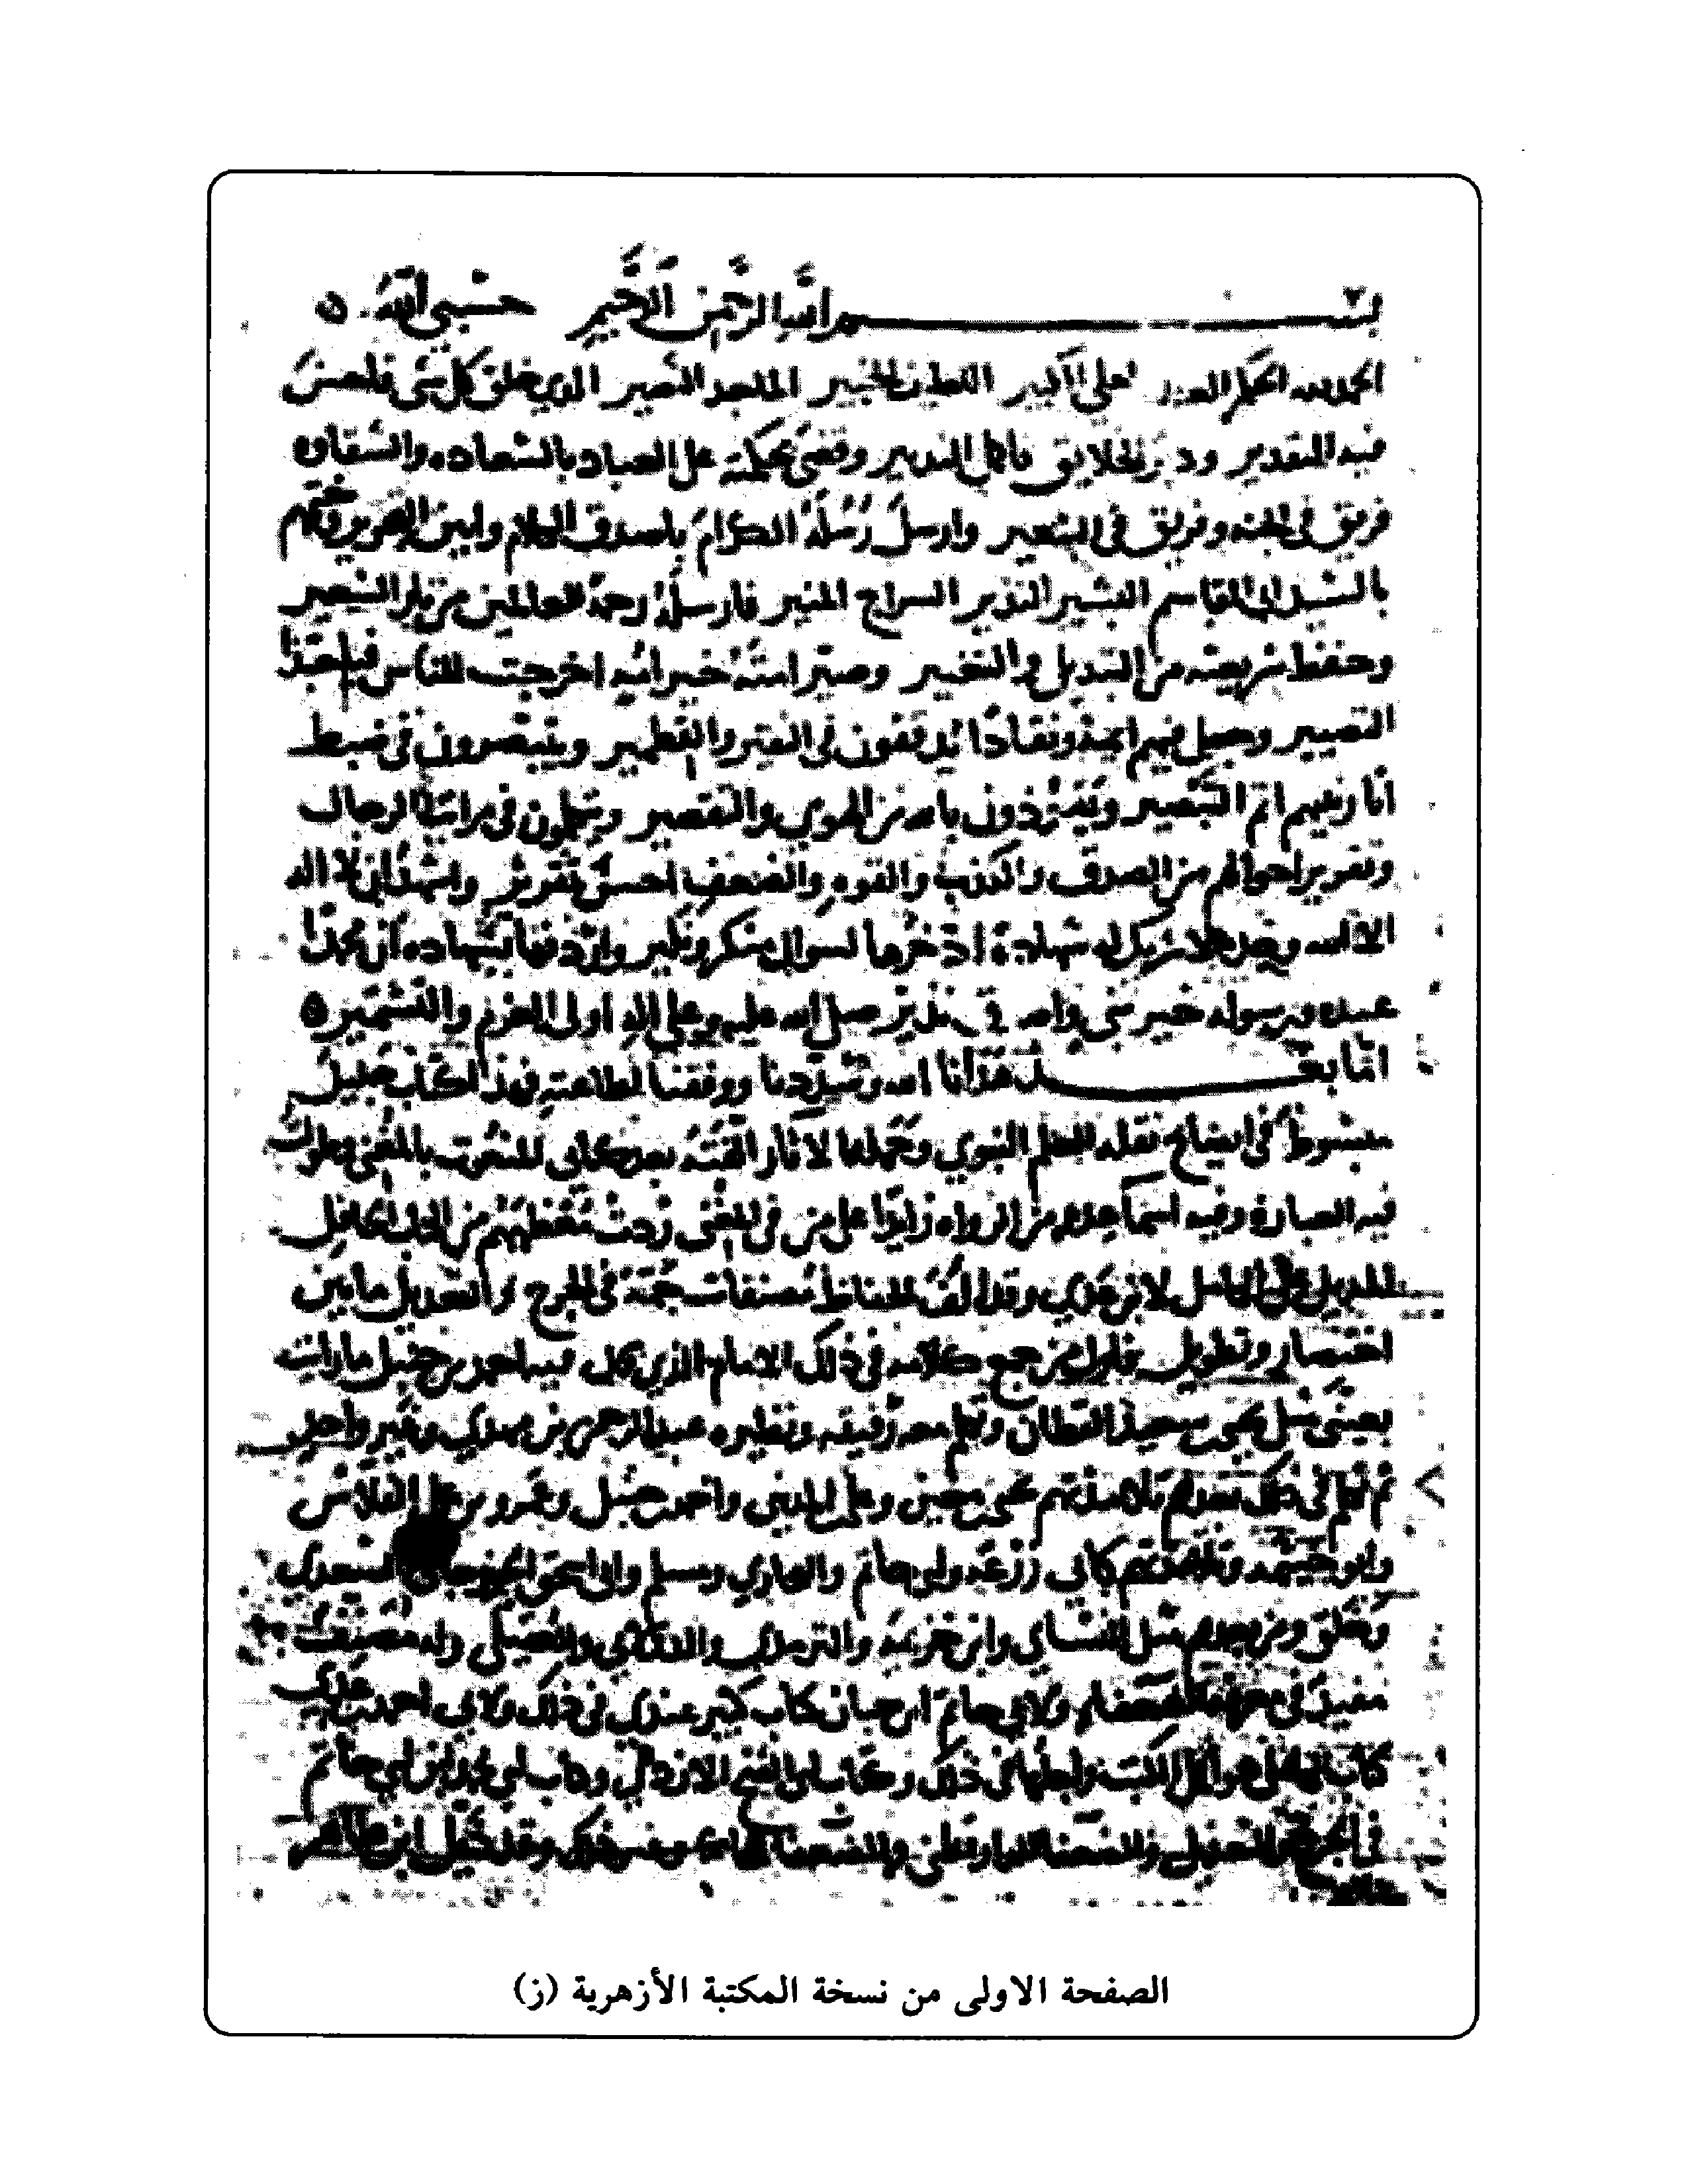 بسم الله الرحمن الرحيم حسبي الله
الحمد لله الحكم العدل العلي الكبير اللطيف الخبير الماجد البصير الذي خلق كل شي فاحسن
فيه التقدير ودبر الخلايق باكمل التدبير وقضى بحكمته على العباد بالسعاده والشقاوه
فريق في الجنه وفريق في السعير وارسل رسله الكرام باصدق الكلام وابين التحرير وختمهم
بالسيد ابي القاسم البشير النذير السراج المنير فارسله رحمة للعالمين من نار السعير
وحفظ شريعته من التبديل والتغيير وصير امته خير امه اخرجت للناس فيا حبذا
التصيير وجعل فيهم ايمة ونقادا يدققون في النقير والقطمير ويتبصرون في ضبط
اثار نبيهم اتم التبصير ويتعوذون بالله من الهوى والتقصير ويتكلمون في مراتب الرجال
وتقرير احوالهم من الصدق والكذب والقوه والضعف احسن تقرير واشهد ان لا اله
الا الله وحده لا شريك له شهادة ادخرها لسوال منكر ونكير واردفها بشهاده ان محمدا
عبده ورسوله خير نبي واصدق نذير صلى الله عليه وعلى اله اولي العزم والتشمير
اما بعد هدانا الله وسددنا ووفقنا لطاعته فهذا كتاب جليل
مبسوط في ايضاح نقله العلم النبوي وحمله الاثار الفته بعد كتابي المنعوت بالمغني وطولت
فيه العبارة وفيه اسما عدة من الرواه زايدا على من في المغني زدت معظمهم من الكتاب الحافل
المذيل على الكامل لابن عدي وقد الف الحفاظ مصنفات جمة في الجرح والتعديل ما بين
اختصار وتطويل فاول من جمع كلامه في ذلك الامام الذي قال فيه احمد بن حنبل ما رايت
بعيني مثل يحيى بن سعيد القطان وتكلم معه رفيقه ونظيره عبد الرحمن بن مهدي وغير واحد
ثم تكلم في ذلك بعدهم تلامذتهم يحيى بن معين وعلي بن المديني واحمد بن حنبل وعمرو بن علي الفلاس
وابو خيثمه وتلامذتهم كابي زرعه وابو حاتم والبخاري ومسلم وابي اسحق الجوزجاني السعدي
وخلق ومن بعدهم مثل النسائي وابن خزيمه والترمذي والدولابي والعقيلي وله مصنف
مفيد في معرفة الضعفا ولابي حاتم ابن حبان كتاب كبير عندي في ذلك ولابي احمد بن عدي
كتاب الكامل هو اكمل الكتب واجلها في ذلك وكتاب ابي الفتح الازدي وكتاب ابي محمد بن ابي حاتم
في الجرح والتعديل والضعفا للدارقطني والضعفا للحاكم وغير ذلك وقد ذيل ابن طاهر
الصفحة الاولى من نسخة المكتبة الأزهرية (ز)